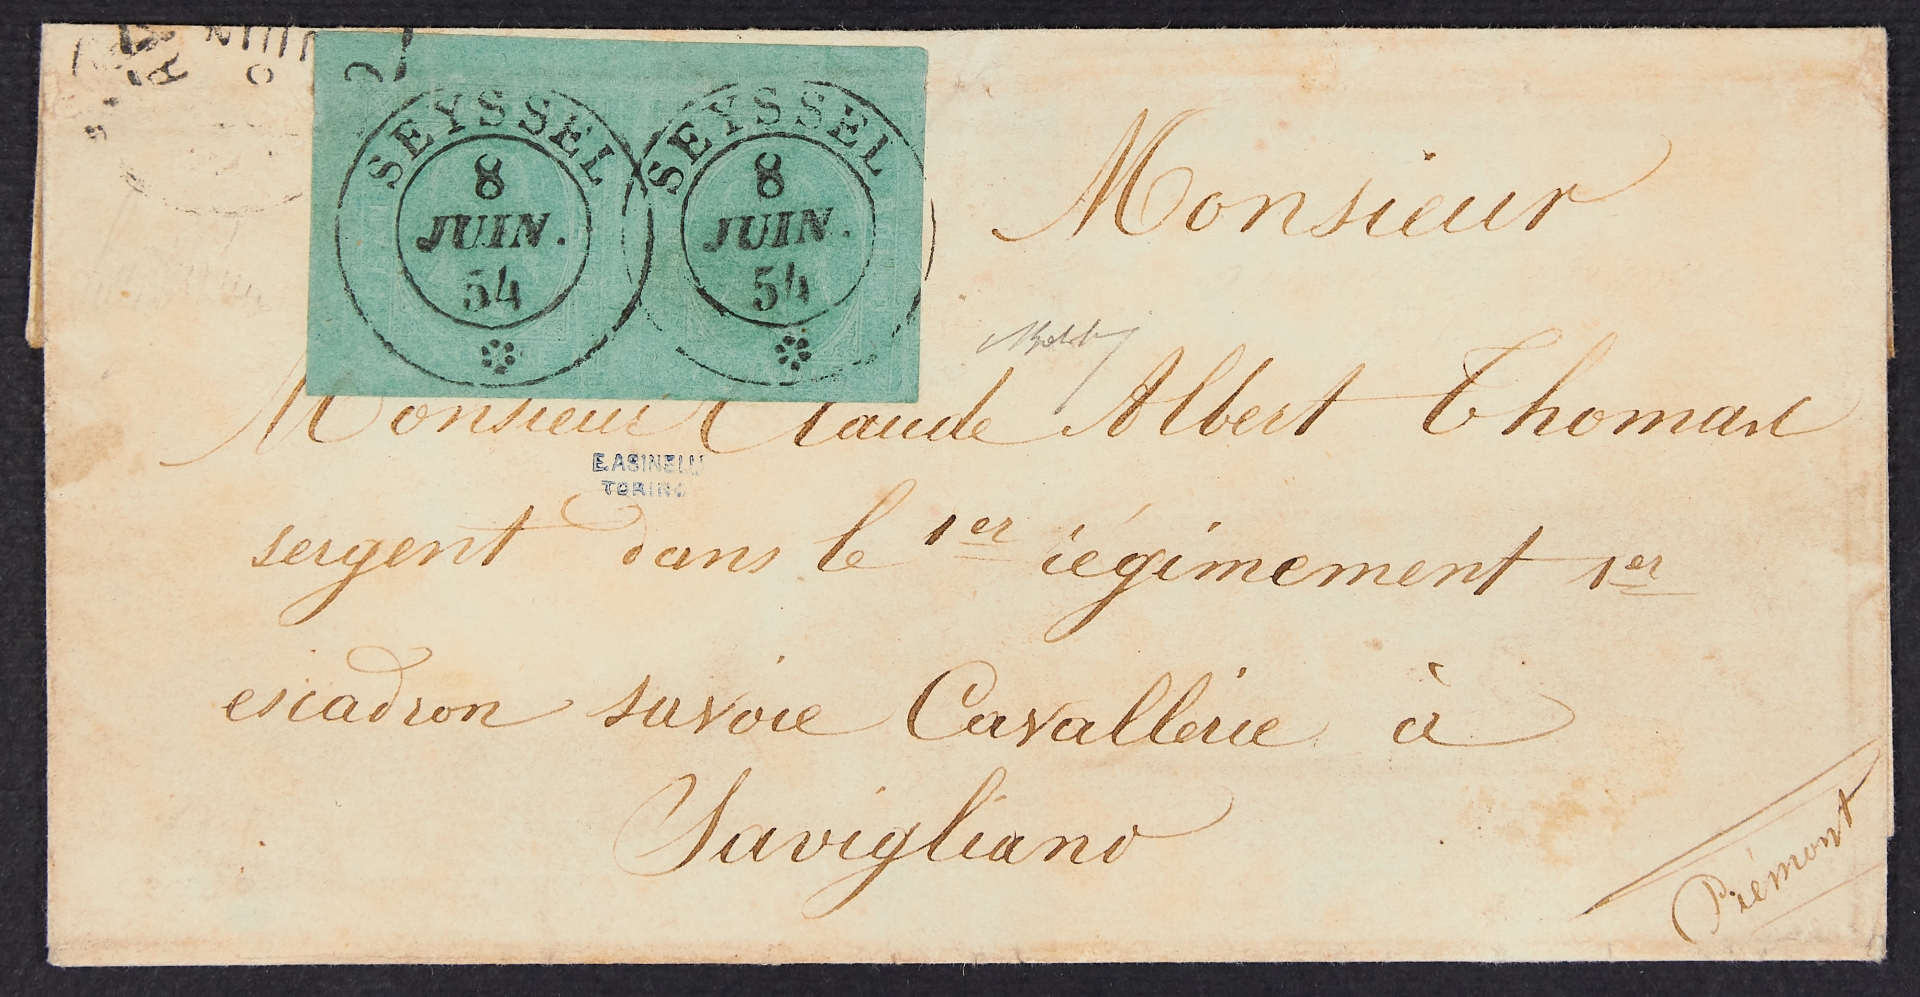 SEYSSEL
8
JUIN.
54
SEYSSEL
8
JUIN.
54
Monsieur
Monsieur Claude Albert Thomasse
E. ASINELLI
TORINO
sergent dans le 1er régimement 1er
escadron savoie Cavallerie à
Savigliano
Piémont